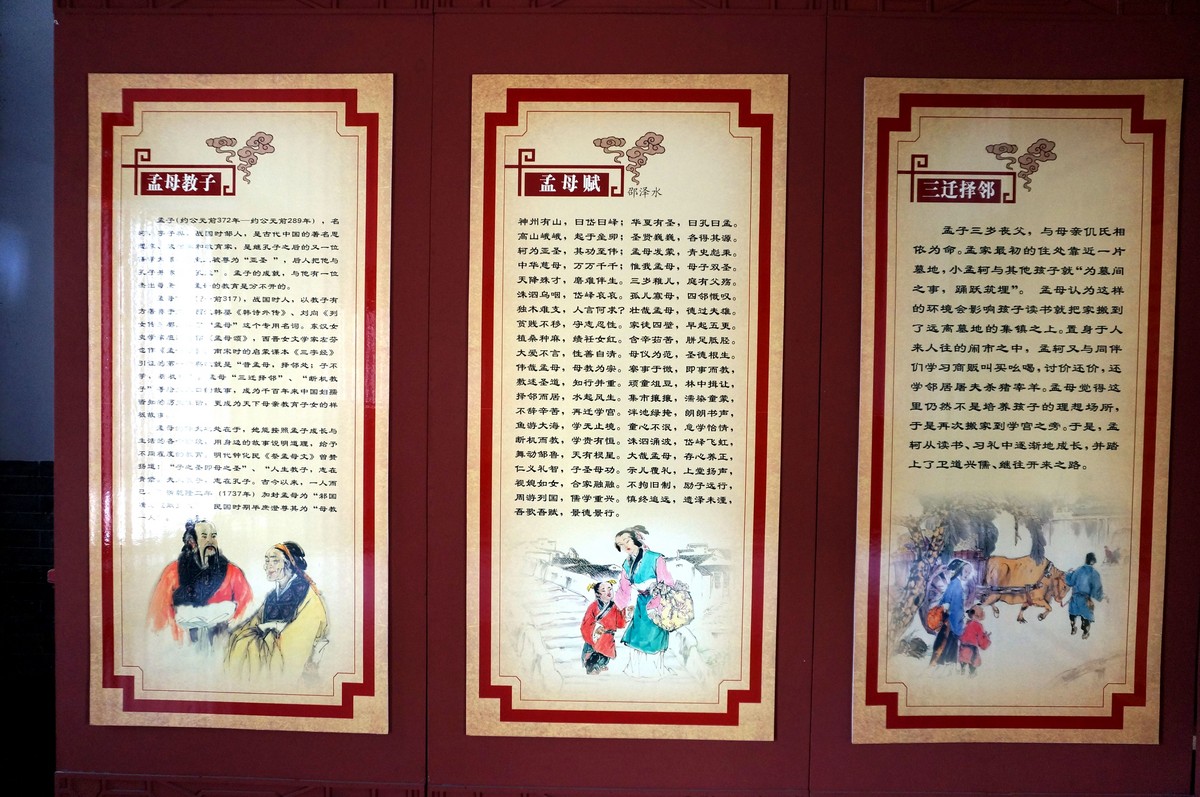 孟母教子
孟子(约公元前372年—约公元前289年)，名
战国时邹人，是古代中国的著名思
教育家，是继孔子之后的又一位
被尊为“亚圣”，后人把他与
孟子的成就，与他有一位
的教育是分不开的。
前317)，战国时人，以教子有
韩婴《韩诗外传》、刘向《列
“孟母”这个专用名词。东汉女
《孟母颂》，西晋女文学家左芬
南宋时的启蒙课本《三字经》
就是“昔孟母，择邻处；子不
孟母“三迁择邻”、“断机教
故事，成为千百年来中国妇孺
更成为天下母亲教育子女的样
板故事。
处在于，她能按照孟子成长与
用身边的故事说明道理，给予
不同程度的教育。明代钟化民《祭孟母文》曾赞
扬道：“子之圣即母之圣”、“人生教子，志在
志在孔子。古今以来，一人而
(1737年)加封孟母为“邾国
民国时期毕庶澄尊其为“母教
孟母赋
邵泽水
神州有山，曰岱曰峰；华夏有圣，曰孔曰孟。
高山峨峨，起于垒卵；圣贤巍巍，各得其源。
轲为亚圣，其功至伟；孟母发蒙，青史彪秉。
中华慈母，万万千千；惟我孟母，母子双圣。
天降殊才，磨难伴生。三岁稚儿，庭有父殇。
洙泗乌咽，岱峰哀哀。孤儿寡母，四邻慨叹。
独木难支，人言何求？壮哉孟母，德过夫雄。
贫贱不移，守志忍性。家徒四壁，早起五更。
植桑种麻，绩纴女红。含辛茹苦，胼足胝胫。
大爱不言，性善自清。母仪为范，圣德根生。
伟哉孟母，母教为宗。寡事于微，即事而教，
教迷圣道，知行并重。顽童俎豆，林中揖让，
择邻而居，水起风生。集市攘攘，濡染童蒙，
不辞辛苦，再迁学宫。泮池绿掩，朗朗书声，
鱼游大海，学无止境。童心不泯，怠学怡情，
断机而教，学贵有恒。洙泗涌波，岱峰飞虹，
舞动邹鲁，天有棂星。大哉孟母，存心养正，
仁义礼智，子圣母功。亲人覆礼，上堂扬声，
视媳如女，合家融融。不拘旧制，励子远行，
周游列国，儒学重兴。慎终追远，遗泽未湮，
吾歌吾赋，景德景行。
三迁择邻
孟子三岁丧父，与母亲仉氏相
依为命。孟家最初的住处靠近一片
墓地，小孟轲与其他孩子就“为墓间
之事，踊跃筑埋”。 孟母认为这样
的环境会影响孩子读书就把家搬到
了远离墓地的集镇之上。置身于人
来人往的闹市之中，孟轲又与同伴
们学习商贩叫买吆喝，讨价还价，还
学邻居屠夫杀猪宰羊。孟母觉得这
里仍然不是培养孩子的理想场所，
于是再次搬家到学宫之旁。于是，孟
轲从读书、习礼中逐渐地成长，并踏
上了卫道兴儒、继往开来之路。